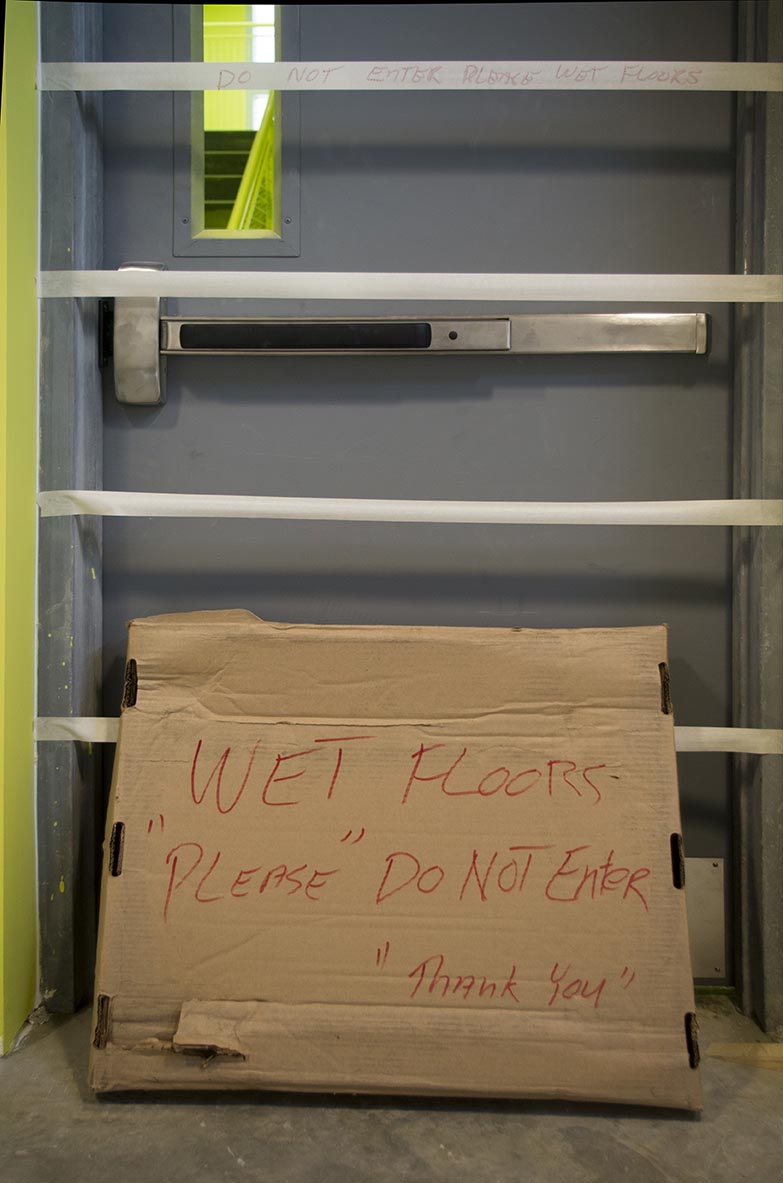 DO NOT ENTER PLEASE WET FLOORS
WET FLOORS
"PLEASE" DO NOT Enter
"Thank You"